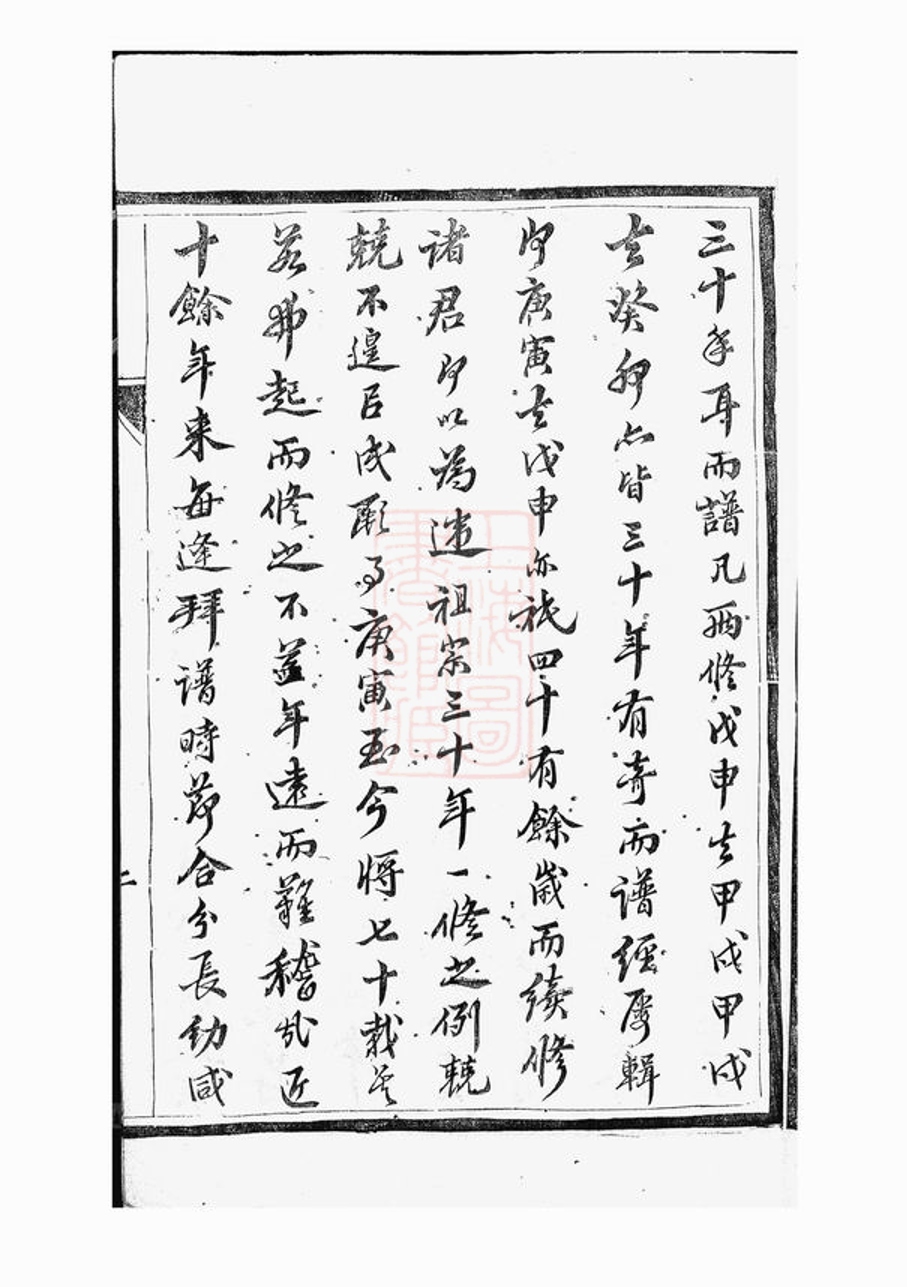 三十年耳而譜凡兩修戊申去甲戌甲戌
去癸卯亦皆三十年有奇而譜經屢輯
即庚寅去戊申亦祇四十有餘歲而續修
諸君即以為違祖宗三十年一修之例兢
兢不遑居成顧了庚寅至今將七十載矣
若弗起而修之不益年遠而難稽哉近
十餘年來每逢拜譜時節合分長幼咸
二